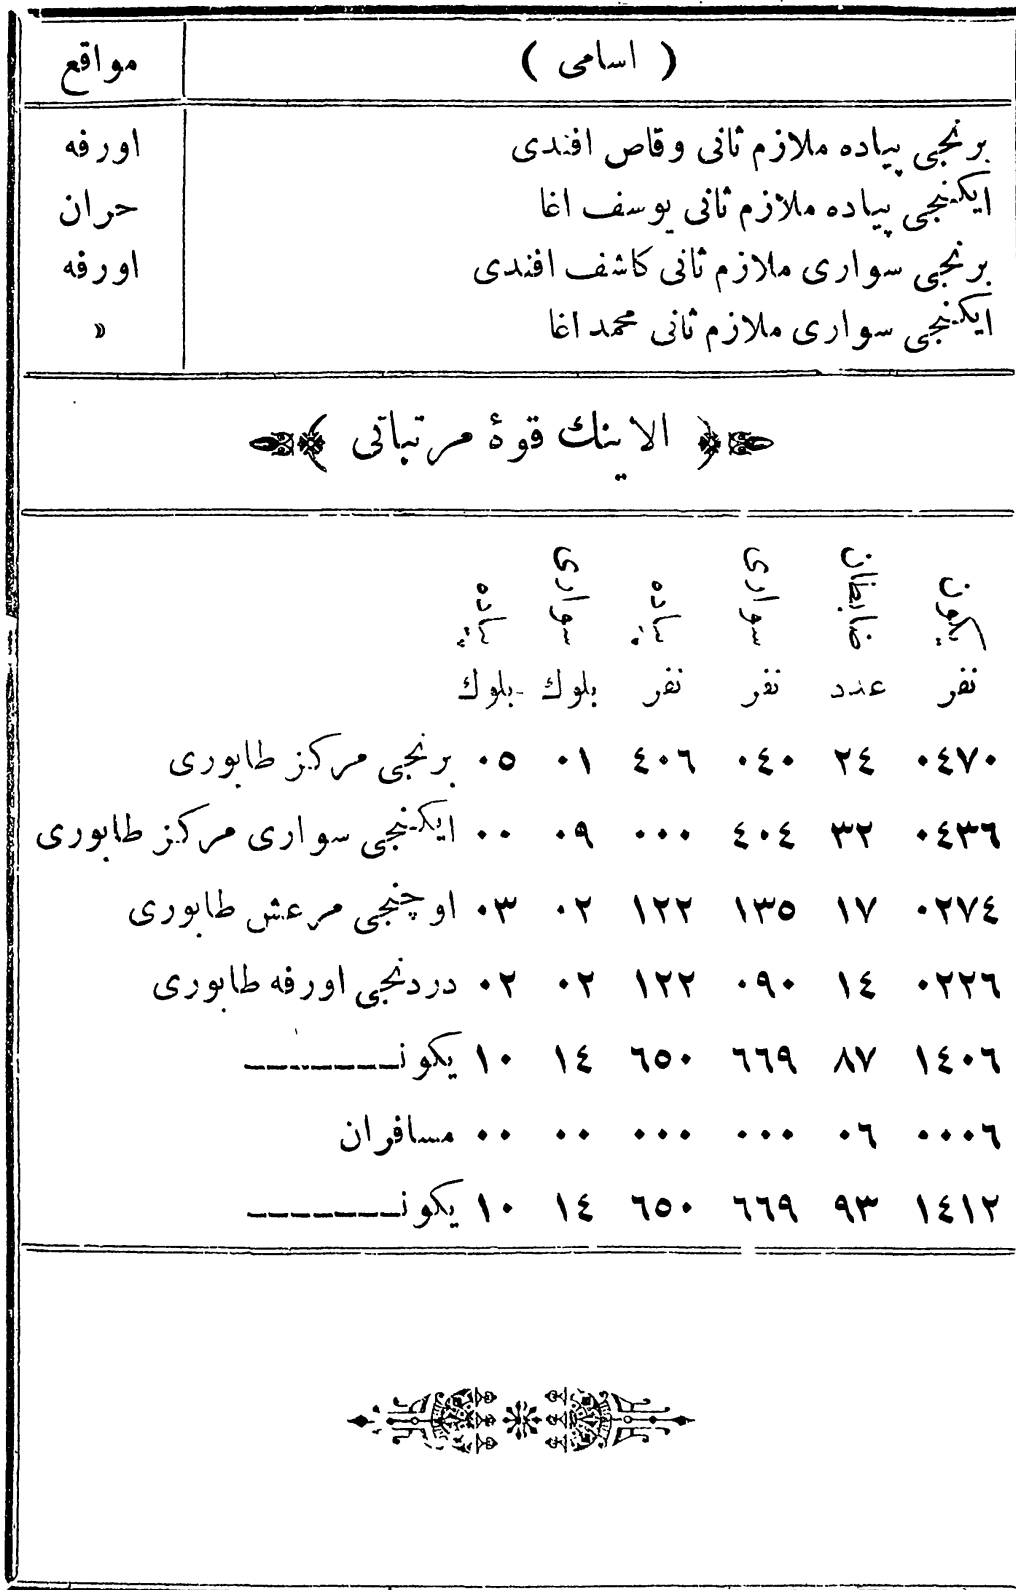 ( اسامی ) مواقع
برنجی پیاده ملازم ثانی وقاص افندی اورفه
ایکنجی پیاده ملازم ثانی یوسف اغا حران
برنجی سواری ملازم ثانی کاشف افندی اورفه
ایکنجی سواری ملازم ثانی محمد اغا »
﴿ الاینك قوۀ مرتباتی ﴾
یکون ضابطان سواری پیاده سواری پیاده
نفر عدد نفر نفر بلوك بلوك
٠٤٧٠ ٢٤ ٠٤٠ ٤٠٦ ٠١ ٠٥ برنجی مرکز طابوری
٠٤٣٦ ٣٢ ٤٠٤ ٠٠٠ ٠٩ ٠٠ ایکنجی سواری مرکز طابوری
٠٢٧٤ ١٧ ١٣٥ ١٢٢ ٠٢ ٠٣ اوچنجی مرعش طابوری
٠٢٢٦ ١٤ ٠٩٠ ١٢٢ ٠٢ ٠٢ دردنجی اورفه طابوری
١٤٠٦ ٨٧ ٦٦٩ ٦٥٠ ١٤ ١٠ یکون
٠٠٠٦ ٠٦ ٠٠٠ ٠٠٠ ٠٠ ٠٠ مسافران
١٤١٢ ٩٣ ٦٦٩ ٦٥٠ ١٤ ١٠ یکون